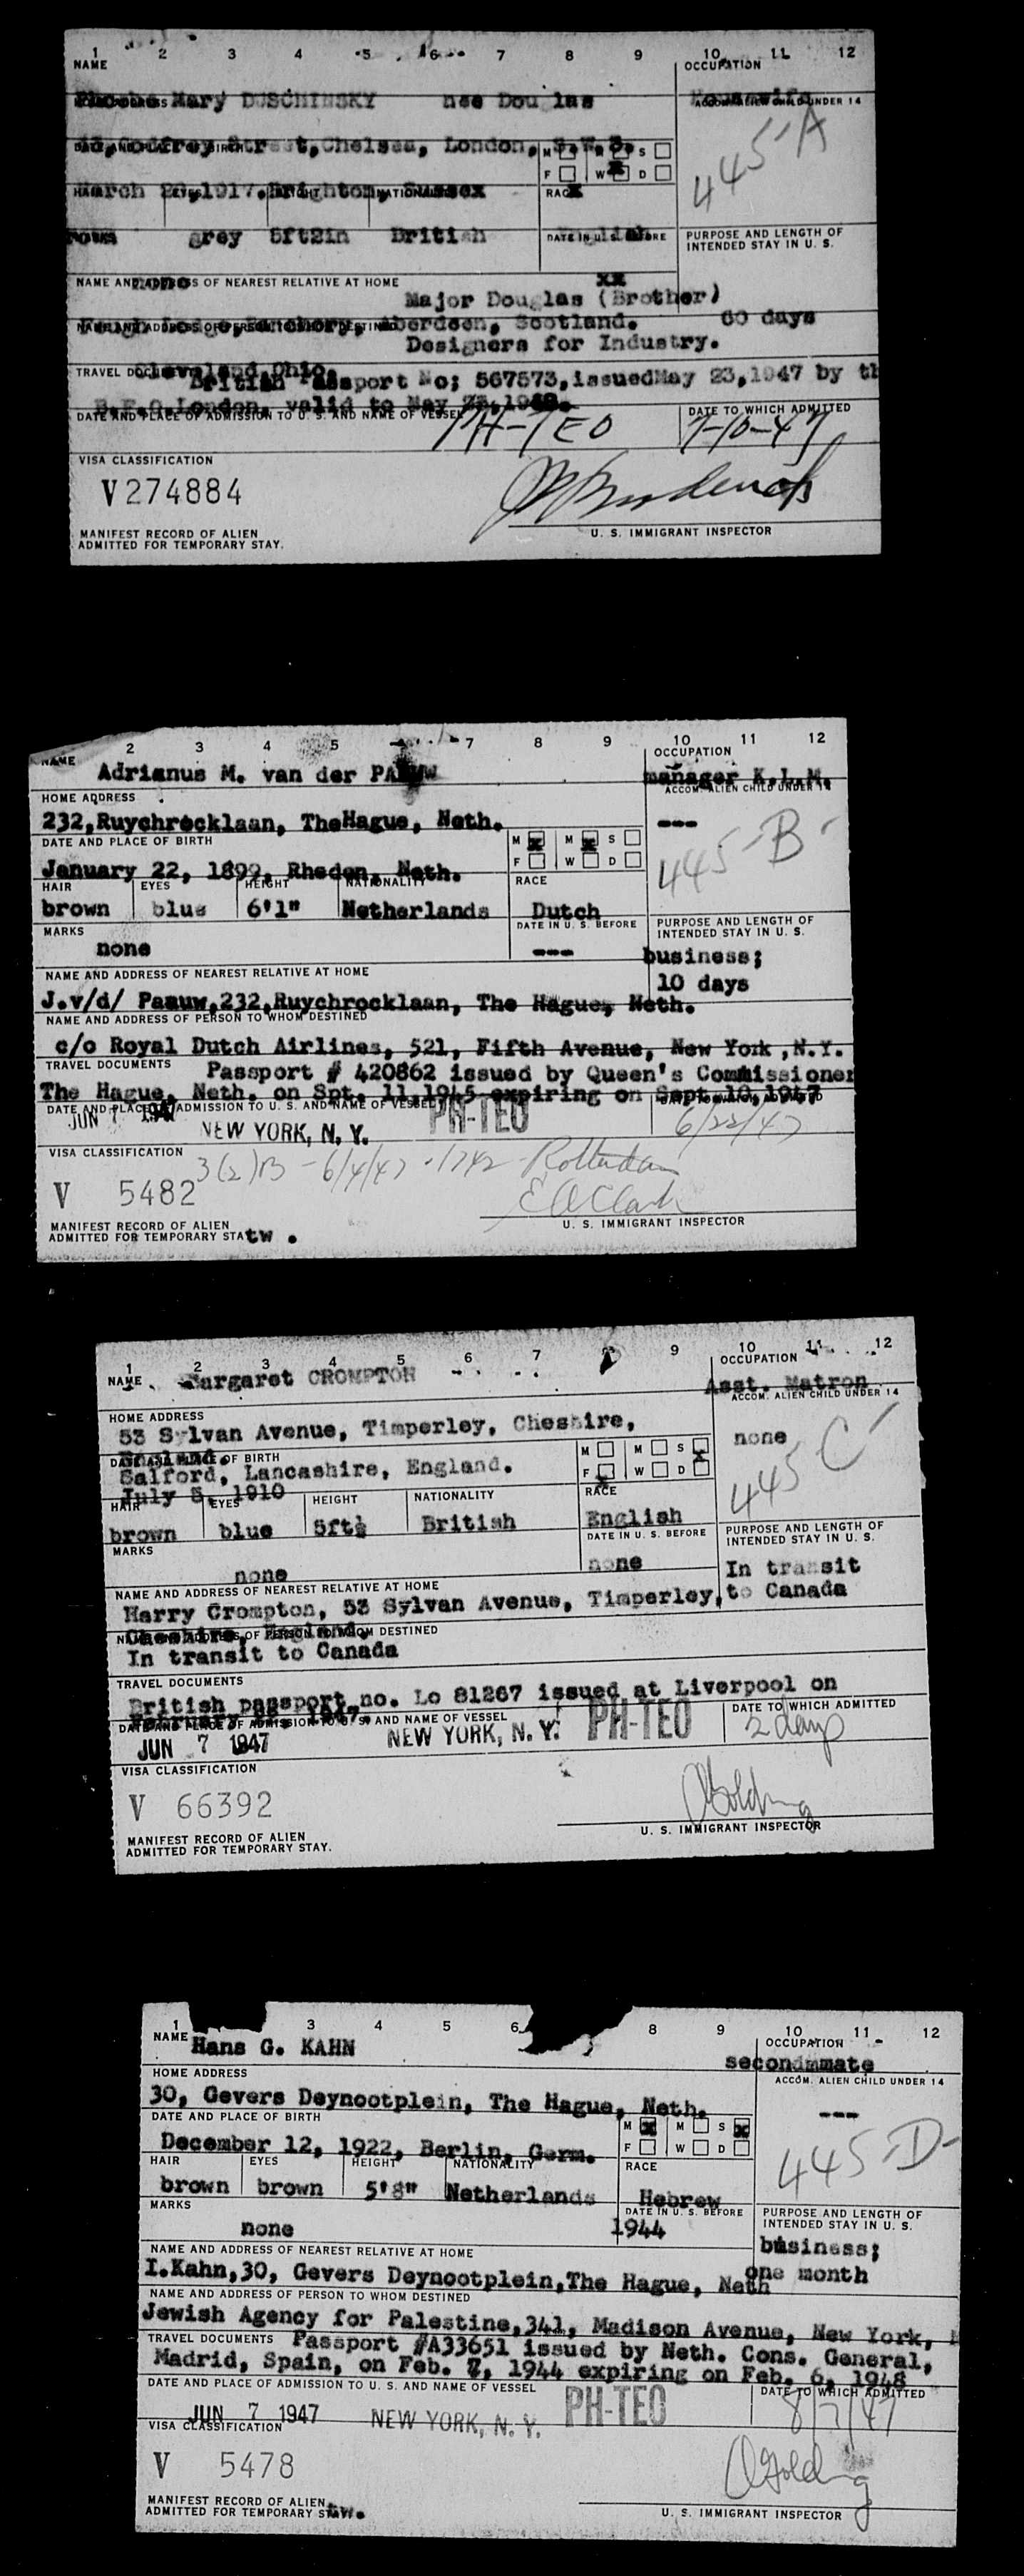 1 2 3 4 5 6 7 8 9 10 11 12
NAME
OCCUPATION
Mary DUSCHINSKY nee Douglas
Housewife
ACCOM. ALIEN CHILD UNDER 14
Godfrey Street, Chelsea, London, S.W.3.
M M S
F W D
445-A
March 1917. Brighton, Sussex
RACE
grey 5ft2in British
DATE IN U. S. BEFORE
PURPOSE AND LENGTH OF
INTENDED STAY IN U. S.
none
NAME AND ADDRESS OF NEAREST RELATIVE AT HOME
xx
Major Douglas (Brother)
Banchory, Aberdeen, Scotland.
60 days
NAME AND ADDRESS OF PERSON TO WHOM DESTINED
Designers for Industry.
Cleveland, Ohio.
TRAVEL DOCUMENTS
British Passport No; 567573, issued May 23, 1947 by th
London, valid to May
DATE AND PLACE OF ADMISSION TO U. S. AND NAME OF VESSEL
PH-TEO
DATE TO WHICH ADMITTED
7-10-47
VISA CLASSIFICATION
V274884
MANIFEST RECORD OF ALIEN
ADMITTED FOR TEMPORARY STAY.
U. S. IMMIGRANT INSPECTOR
2 3 4 5 7 8 9 10 11 12
NAME
OCCUPATION
Adrianus M. van der PAAUW
manager K.L.M.
ACCOM. ALIEN CHILD UNDER 14
HOME ADDRESS
232, Ruychrocklaan, The Hague, Neth.
---
DATE AND PLACE OF BIRTH
M x M x S
F W D
445-B-
January 22, 1899, Rheden, Neth.
HAIR EYES HEIGHT NATIONALITY RACE
brown blue 6'1" Netherlands Dutch
MARKS
DATE IN U. S. BEFORE
PURPOSE AND LENGTH OF
INTENDED STAY IN U. S.
none
---
business;
10 days
NAME AND ADDRESS OF NEAREST RELATIVE AT HOME
J.v/d/ Paauw, 232, Ruychrocklaan, The Hague, Neth.
NAME AND ADDRESS OF PERSON TO WHOM DESTINED
c/o Royal Dutch Airlines, 521, Fifth Avenue, New York, N.Y.
TRAVEL DOCUMENTS Passport # 420862 issued by Queen's Commissioner
The Hague, Neth. on Spt. 11, 1945 expiring on Sept 10, 1947
DATE AND PLACE OF ADMISSION TO U. S. AND NAME OF VESSEL
JUN 7 1947 NEW YORK, N. Y. PH-TEO
6/22/47
VISA CLASSIFICATION
3(2)B - 6/4/47 - 1742 - Rotterdam
V 5482
E A Clark
MANIFEST RECORD OF ALIEN
ADMITTED FOR TEMPORARY STA tw .
U. S. IMMIGRANT INSPECTOR
1 2 3 4 5 6 7 9 10 11 12
NAME
OCCUPATION
Margaret CROMPTON
Asst. Matron
ACCOM. ALIEN CHILD UNDER 14
HOME ADDRESS
53 Sylvan Avenue, Timperley, Cheshire,
England.
none
DATE AND PLACE OF BIRTH
Salford, Lancashire, England.
July 5, 1910
M M S
F W D
445 C-
HAIR EYES HEIGHT NATIONALITY RACE
brown blue 5ft½ British English
MARKS
DATE IN U. S. BEFORE
PURPOSE AND LENGTH OF
INTENDED STAY IN U. S.
none
none
In transit
to Canada
NAME AND ADDRESS OF NEAREST RELATIVE AT HOME
Harry Crompton, 53 Sylvan Avenue, Timperley,
Cheshire, England.
NAME AND ADDRESS OF PERSON TO WHOM DESTINED
In transit to Canada
TRAVEL DOCUMENTS
British passport no. Lo 81267 issued at Liverpool on
February 1947.
DATE AND PLACE OF ADMISSION TO U. S. AND NAME OF VESSEL
JUN 7 1947 NEW YORK, N. Y. PH-TEO
DATE TO WHICH ADMITTED
2 days
VISA CLASSIFICATION
V 66392
Golding
MANIFEST RECORD OF ALIEN
ADMITTED FOR TEMPORARY STAY.
U. S. IMMIGRANT INSPECTOR
1 3 4 5 6 8 9 10 11 12
NAME
OCCUPATION
Hans G. KAHN
secondmmate
ACCOM. ALIEN CHILD UNDER 14
HOME ADDRESS
30, Gevers Deynootplein, The Hague, Neth.
---
DATE AND PLACE OF BIRTH
M x M S x
F W D
445-D-
December 12, 1922, Berlin, Germ.
HAIR EYES HEIGHT NATIONALITY RACE
brown brown 5'8" Netherlands Hebrew
MARKS
DATE IN U. S. BEFORE
PURPOSE AND LENGTH OF
INTENDED STAY IN U. S.
none
1944
business;
one month
NAME AND ADDRESS OF NEAREST RELATIVE AT HOME
I.Kahn, 30, Gevers Deynootplein, The Hague, Neth
NAME AND ADDRESS OF PERSON TO WHOM DESTINED
Jewish Agency for Palestine, 341, Madison Avenue, New York,
TRAVEL DOCUMENTS Passport #A33651 issued by Neth. Cons. General,
Madrid, Spain, on Feb. 7, 1944 expiring on Feb. 6, 1948
DATE AND PLACE OF ADMISSION TO U. S. AND NAME OF VESSEL
DATE TO WHICH ADMITTED
JUN 7 1947 NEW YORK, N. Y. PH-TEO
8/7/47
VISA CLASSIFICATION
V 5478
Golding
MANIFEST RECORD OF ALIEN
ADMITTED FOR TEMPORARY
U. S. IMMIGRANT INSPECTOR